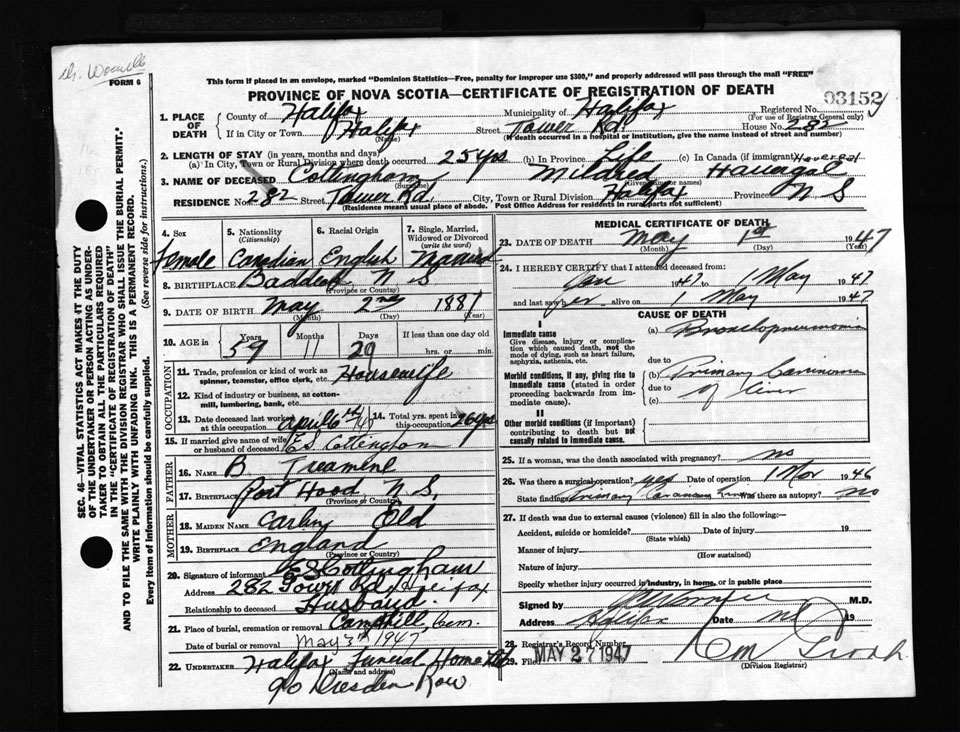 Dr.
FORM 6
This form if placed in an envelope, marked "Dominion Statistics—Free, penalty for improper use $300," and properly addressed will pass through the mail "FREE"
PROVINCE OF NOVA SCOTIA—CERTIFICATE OF REGISTRATION OF DEATH
03152
1. PLACE OF DEATH County of Halifax Municipality of Halifax Registered No.
(For use of Registrar General only)
If in City or Town Halifax Street Tower Rd House No. 282
(Name) (If death occurred in a hospital or institution, give the name instead of street and number)
2. LENGTH OF STAY (in years, months and days)
(a) In City, Town or Rural Division where death occurred 25 yrs (b) In Province Life (c) In Canada (if immigrant) Havergal
3. NAME OF DECEASED Cottingham Mildred Havergal
(Surname) (Given name or names)
RESIDENCE No. 282 Street Tower Rd. City, Town or Rural Division Halifax Province N S
(Residence means usual place of abode. Post Office Address for residents in rural parts not sufficient)
4. Sex 5. Nationality (Citizenship) 6. Racial Origin 7. Single, Married, Widowed or Divorced (write the word)
Female Canadian English Married
8. BIRTHPLACE Baddeck N S
(Province or Country)
9. DATE OF BIRTH May 2nd 1881
(Month) (Day) (Year)
10. AGE in Years Months Days If less than one day old
59 11 29 hrs. or min.
OCCUPATION
11. Trade, profession or kind of work as spinner, teamster, office clerk, etc. Housewife
12. Kind of industry or business, as cotton-mill, lumbering, bank, etc.
13. Date deceased last worked at this occupation April 6th/47 14. Total yrs. spent in this occupation 26 yrs
15. If married give name of wife or husband of deceased E S Cottingham
FATHER
16. NAME B.
17. BIRTHPLACE Port Hood N S.
(Province or Country)
MOTHER
18. MAIDEN NAME Old
19. BIRTHPLACE England
(Province or Country)
20. Signature of informant E S Cottingham
Address 282 Tower Rd Halifax
Relationship to deceased Husband.
21. Place of burial, cremation or removal Camphill Cem.
Date of burial or removal May 3rd 1947
22. UNDERTAKER Halifax Funeral Home Ltd
(Name and address)
90 Dresden Row
MEDICAL CERTIFICATE OF DEATH
23. DATE OF DEATH May 1st 1947
(Month) (Day) (Year)
24. I HEREBY CERTIFY that I attended deceased from:
Jan 1947 to 1 May 1947
and last saw her alive on 1 May 1947
CAUSE OF DEATH
I
Immediate cause (a) Bronchopneumonia
Give disease, injury or complication which caused death, not the mode of dying, such as heart failure, asphyxia, asthenia, etc.
due to
Morbid conditions, if any, giving rise to immediate cause (stated in order proceeding backwards from immediate cause). (b) Primary Carcinoma
due to of liver
(c)
II
Other morbid conditions (if important) contributing to death but not causally related to immediate cause.
25. If a woman, was the death associated with pregnancy? no
26. Was there a surgical operation? yes Date of operation 1 Nov 1946
State finding Primary Carcinoma liver Was there an autopsy? no
27. If death was due to external causes (violence) fill in also the following:—
Accident, suicide or homicide? Date of injury 19
(State which)
Manner of injury
(How sustained)
Nature of injury
Specify whether injury occurred in industry, in home, or in public place
Signed by M.D.
Address Halifax Date 19
28. Registrar's Record Number
29. Filed MAY 27 1947
(Division Registrar)
SEC. 46—VITAL STATISTICS ACT MAKES IT THE DUTY
OF THE UNDERTAKER OR PERSON ACTING AS UNDER-
TAKER TO OBTAIN ALL THE PARTICULARS REQUIRED
IN THE "CERTIFICATE OF REGISTRATION OF DEATH"
AND TO FILE THE SAME WITH THE DIVISION REGISTRAR WHO SHALL ISSUE THE BURIAL PERMIT.
WRITE PLAINLY WITH UNFADING INK. THIS IS A PERMANENT RECORD.
Every item of Information should be carefully supplied. (See reverse side for instructions.)